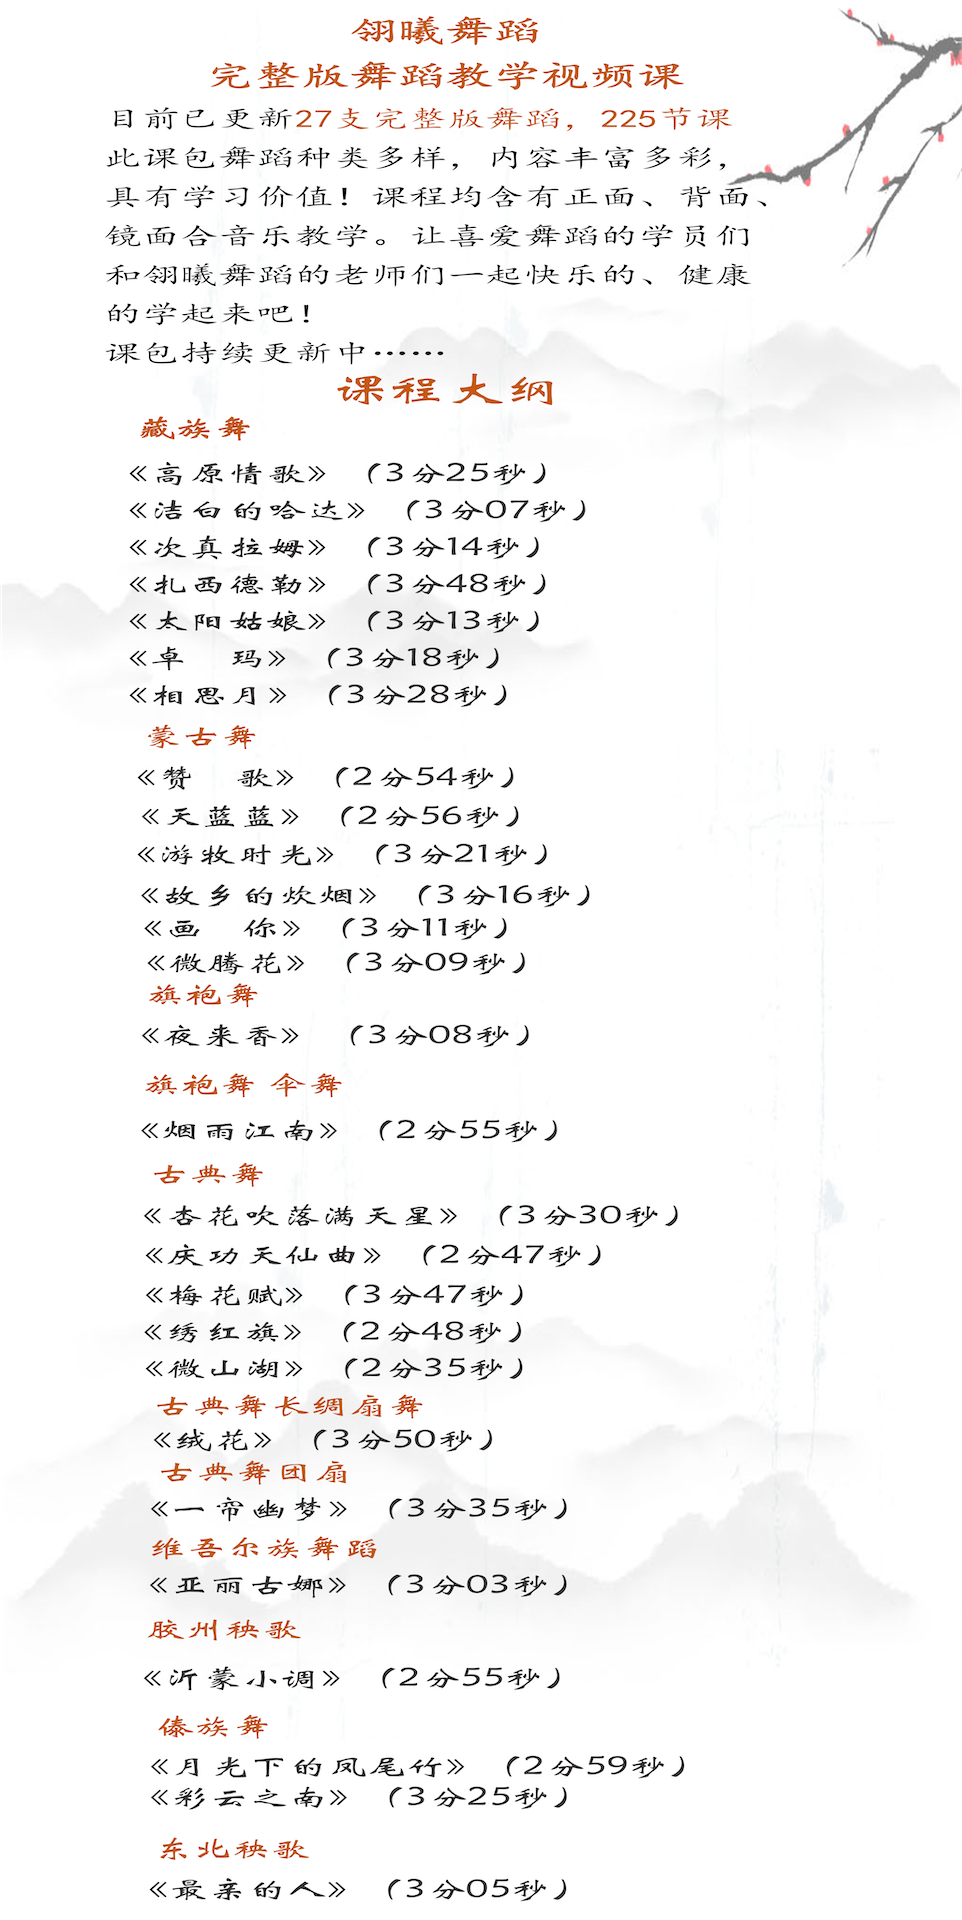 翎曦舞蹈
完整版舞蹈教学视频课
目前已更新27支完整版舞蹈，225节课
此课包舞蹈种类多样，内容丰富多彩，
具有学习价值！课程均含有正面、背面、
镜面合音乐教学。让喜爱舞蹈的学员们
和翎曦舞蹈的老师们一起快乐的、健康
的学起来吧！
课包持续更新中……
课程大纲
藏族舞
《高原情歌》（3分25秒）
《洁白的哈达》（3分07秒）
《次真拉姆》（3分14秒）
《扎西德勒》（3分48秒）
《太阳姑娘》（3分13秒）
《卓　玛》（3分18秒）
《相思月》（3分28秒）
蒙古舞
《赞　歌》（2分54秒）
《天蓝蓝》（2分56秒）
《游牧时光》（3分21秒）
《故乡的炊烟》（3分16秒）
《画　你》（3分11秒）
《微腾花》（3分09秒）
旗袍舞
《夜来香》（3分08秒）
旗袍舞 伞舞
《烟雨江南》（2分55秒）
古典舞
《杏花吹落满天星》（3分30秒）
《庆功天仙曲》（2分47秒）
《梅花赋》（3分47秒）
《绣红旗》（2分48秒）
《微山湖》（2分35秒）
古典舞长绸扇舞
《绒花》（3分50秒）
古典舞团扇
《一帘幽梦》（3分35秒）
维吾尔族舞蹈
《亚丽古娜》（3分03秒）
胶州秧歌
《沂蒙小调》（2分55秒）
傣族舞
《月光下的凤尾竹》（2分59秒）
《彩云之南》（3分25秒）
东北秧歌
《最亲的人》（3分05秒）